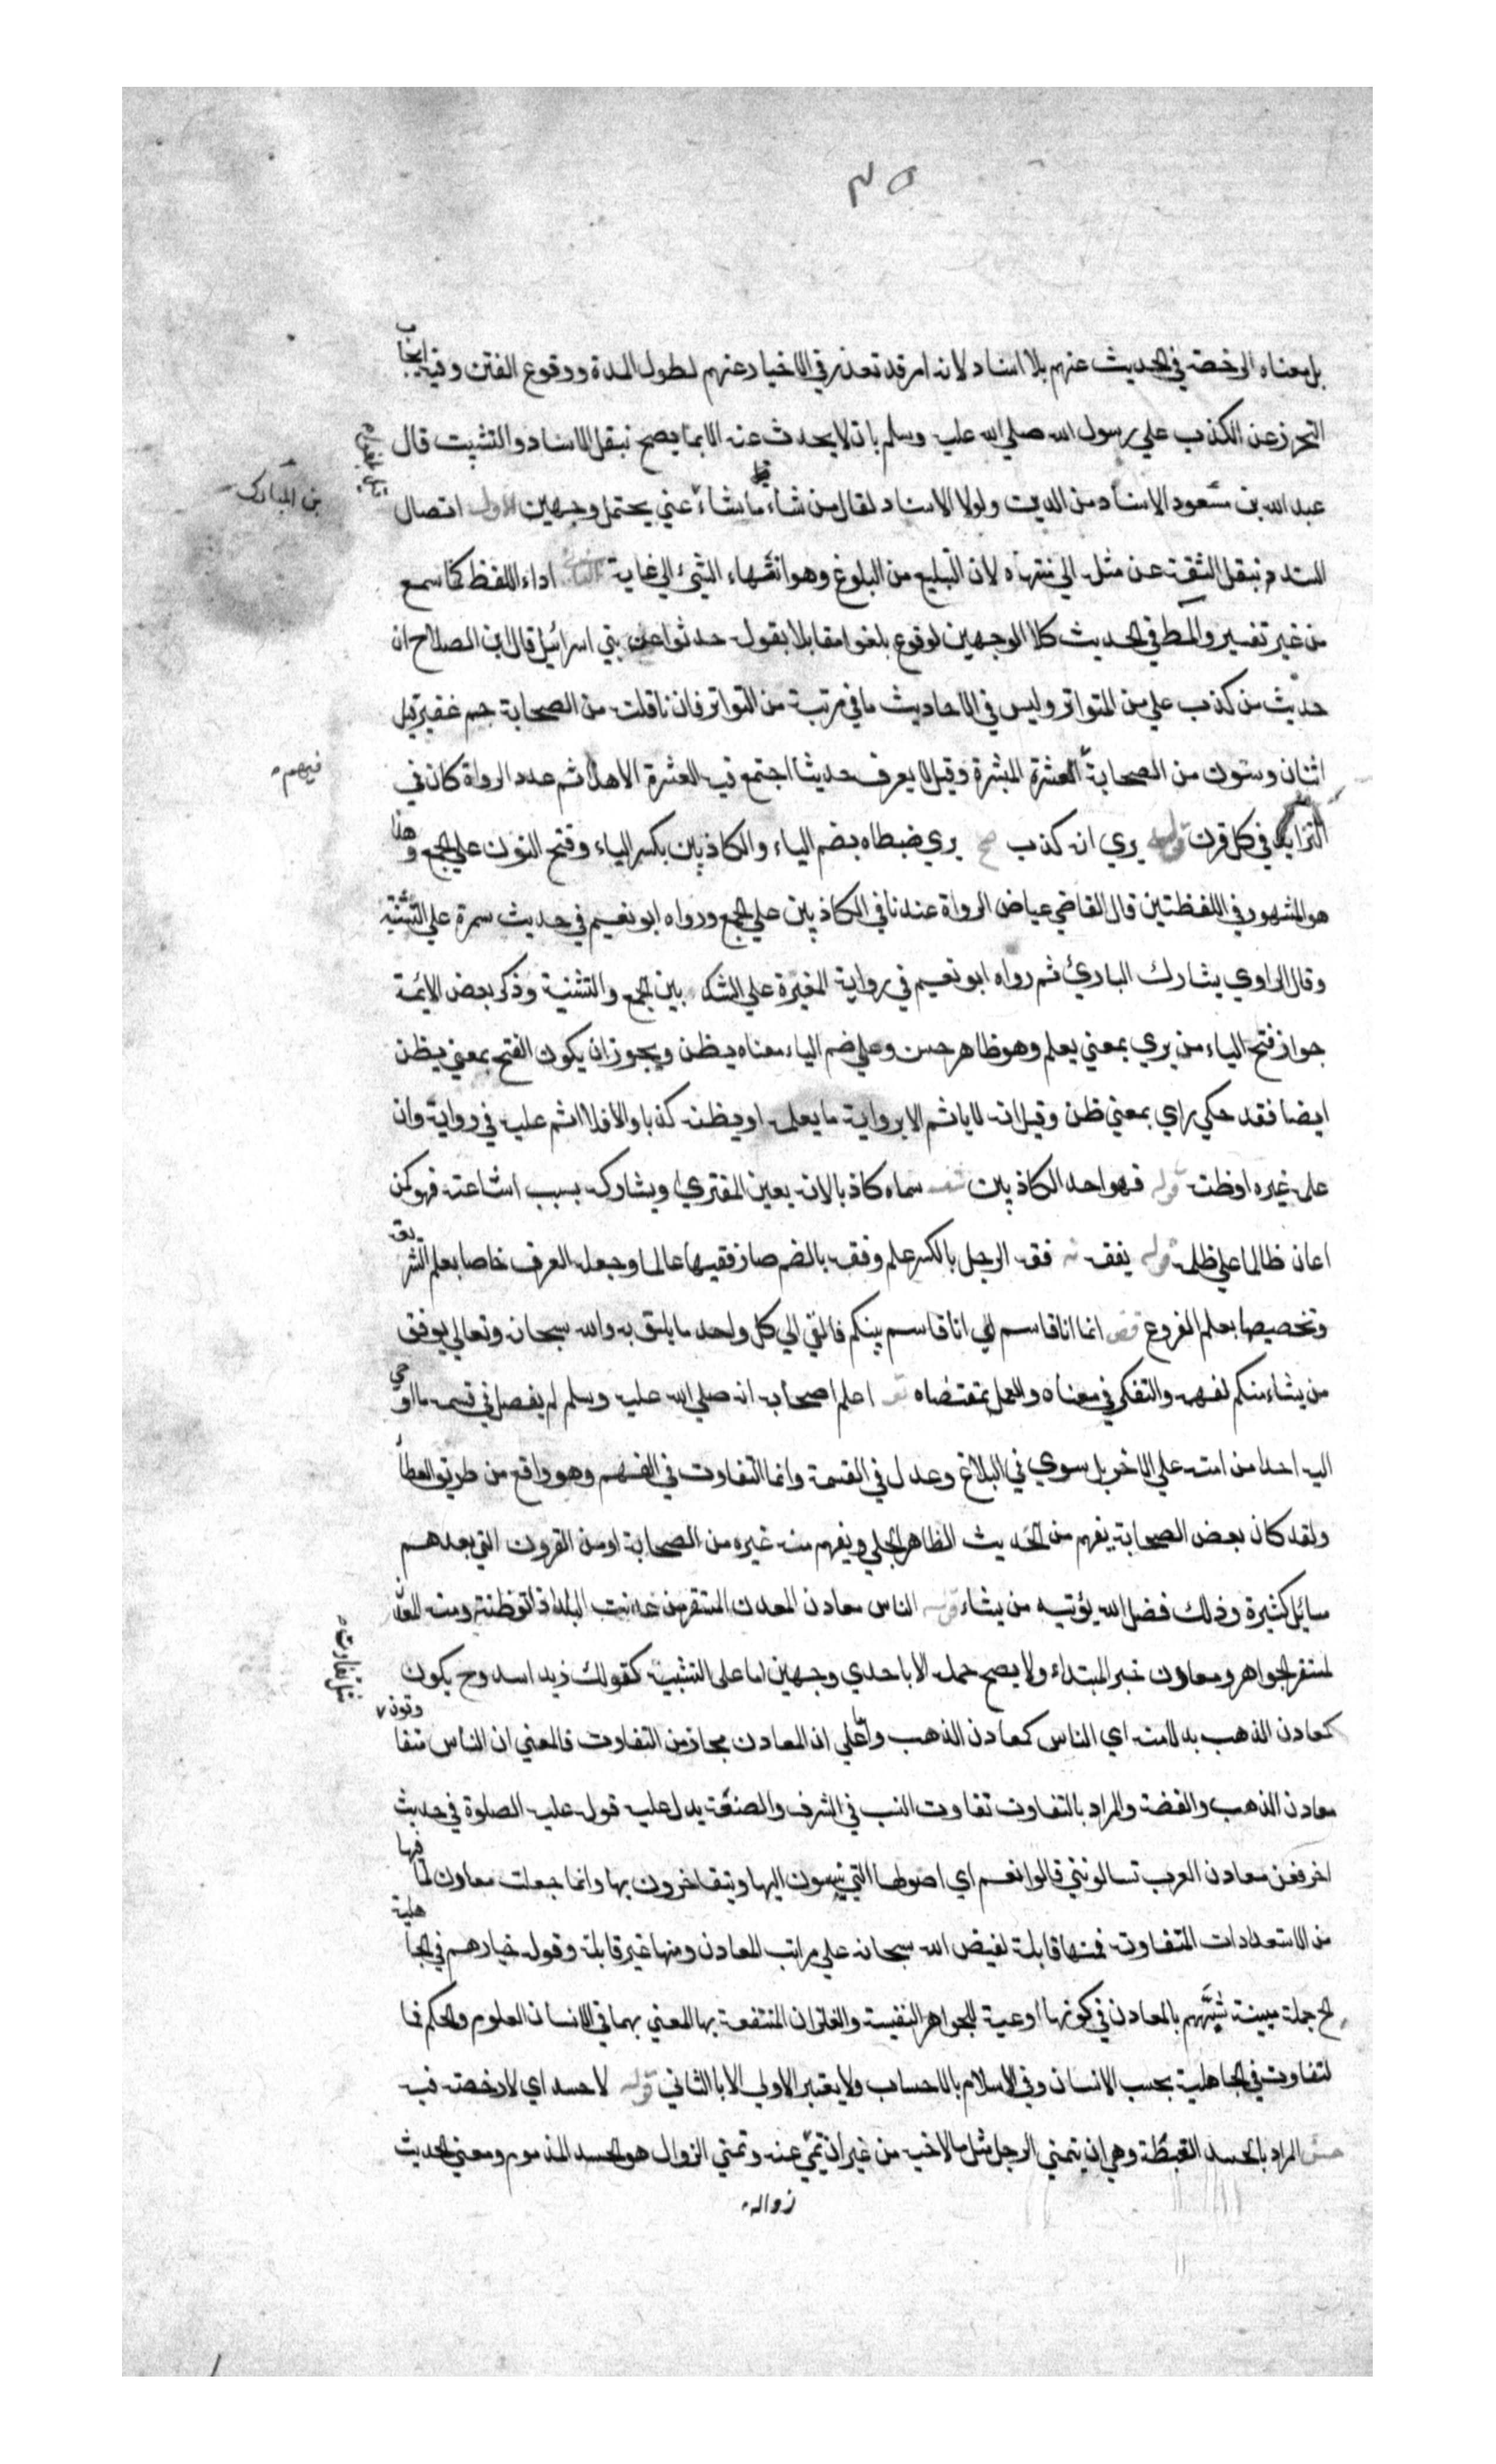 ٣٥
بل معناه الرخصة في الحديث عنهم بلا اسناد لانه امر قد تعذر في الاخبار عنهم لطول المدة ووقوع الفتن وفيه ايجاب
التحرز عن الكذب علي رسول الله صلي الله عليه وسلم بان لا يحدث عنه الا بما يصح بنقل الاسناد والتثبت قال
عبد الله بن مسعود الاسناد من الدين ولولا الاسناد لقال من شاء ما شاء عني يحتمل وجهين الاول اتصال
بن المبارك
السند بنقل الثقة عن مثله الي منتهاه لان التبليغ من البلوغ وهو انتهاء الشيء الي غاية الثاني اداء اللفظ كما سمع
من غير تغيير والمط في الحديث كلا الوجهين لوقوع بلغوا مقابلا بقوله حدثوا عن بني اسرائيل قال ابن الصلاح ان
حديث من كذب علي من المتواتر وليس في الاحاديث ما في مرتبة من التواتر فان ناقلته من الصحابة جم غفير قيل
اثنان وستون من الصحابة العشرة المبشرة وقيل لا يعرف حديثا اجتمع فيه العشرة الا هذا ثم عدد الرواة كان في
فيهم
التزايد في كل قرن قوله يري انه كذب صح يري ضبطاه بضم الياء والكاذبين بكسر الباء وفتح النون علي الجمع وهذا
هو المشهور في اللفظتين قال القاضي عياض الرواة عندنا في الكاذبين علي الجمع ورواه ابو نعيم في حديث سمرة علي التثنية
وقال الراوي يشارك البادئ ثم رواه ابو نعيم في رواية المغيرة علي الشك بين الجمع والتثنية وذكر بعض الائمة
جواز فتح الياء من يري بمعني يعلم وهو ظاهر حسن وعلي ضم الياء معناه يظن ويجوز ان يكون الفتح بمعني يظن
ايضا فقد حكي راي بمعني ظن وقيل انه لا ياثم الا برواية ما يعلمه او يظنه كذبا والا فلا اثم عليه في رواية وان
علمه غيره او ظنه قوله فهو احد الكاذبين شف سماه كاذبا لانه يعين المفتري ويشاركه بسبب اشاعته فهو كمن
اعان ظالما علي ظلمه قوله يفقه نه فقه الرجل بالكسر علم وفقه بالضم صار فقيها عالما وجعله العرف خاصا بعلم الشريعة
وتخصيصها بعلم الفروع قض انما انا قاسم اي انا قاسم بينكم فالقي الي كل واحد ما يليق به والله سبحانه وتعالي يوفق
من يشاء منكم لفهمه والتفكر في معناه والعمل بمقتضاه تو اعلم اصحابه انه صلي الله عليه وسلم لم يفصل في قسمه ما اوحي
اليه احدا من امته علي الاخر بل سوي في البلاغ وعدل في القسمة وانما التفاوت في الفهم وهو واقع من طريق العطاء
ولقد كان بعض الصحابة يفهم من الحديث الظاهر الجلي ويفهم منه غيره من الصحابة او من القرون التي بعدهم
مسايل كثيرة وذلك فضل الله يؤتيه من يشاء قوله الناس معادن المعدن المستقر من عدنت البلد اذا توطنته ومنه المعدن
لمستقر الجواهر ومعادن خبر المبتداء ولا يصح حمله الا باحدي وجهين اما علي التشبيه كقولك زيد اسد وح يكون
كمعادن الذهب بدلا منه اي الناس كمعادن الذهب واما علي ان المعادن مجاز من التفاوت فالمعني ان الناس متفاوتون
معادن الذهب والفضة والمراد بالتفاوت تفاوت النسب في الشرف والضعة يدل عليه قوله عليه الصلوة في حديث
اخر فعن معادن العرب تسالونني قالوا نعم اي اصولها التي ينسبون اليها ويتفاخرون بها وانما جعلت معادن لما فيها
من الاستعدادات المتفاوتة فمنها قابلة لفيض الله سبحانه علي مراتب المعادن ومنها غير قابلة وقوله خيارهم في الجاهلية
الخ جملة مبينة شبههم بالمعادن في كونها اوعية للجواهر النفيسة والفلزات المنتفعة بها المعني بهما في الانسان العلوم والحكم فا
لتفاوت في الجاهلية بحسب الانساب وفي الاسلام بالاحساب ولا يعتبر الاولي الا بالثاني قوله لا حسد اي لا رخصة فيه
حس المراد بالحسد الغبطة وهي ان يتمني الرجل مثل ما لاخيه من غير ان يتمني عنه وتمني الزوال هو الحسد المذموم ومعني الحديث
زواله